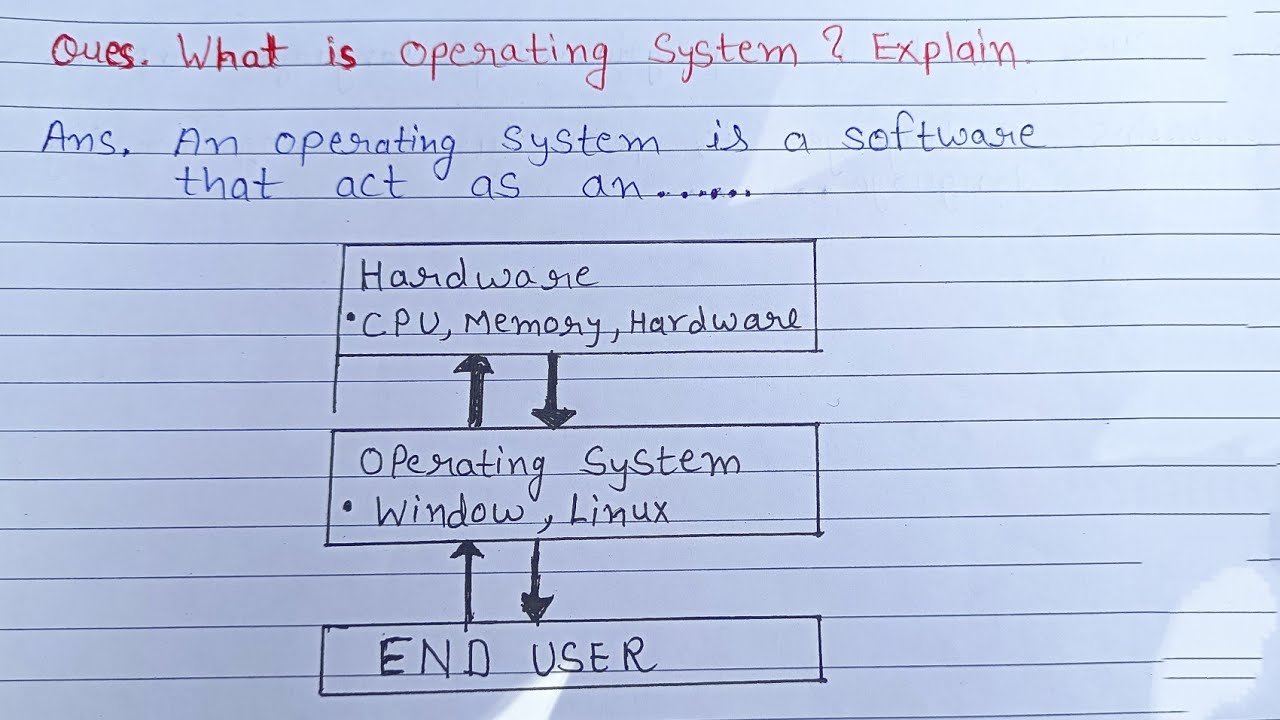 Ques. What is Operating System ? Explain.
Ans. An operating system is a software
that act as an.......
Hardware
• CPU, Memory, Hardware
Operating System
• Window, Linux
END USER